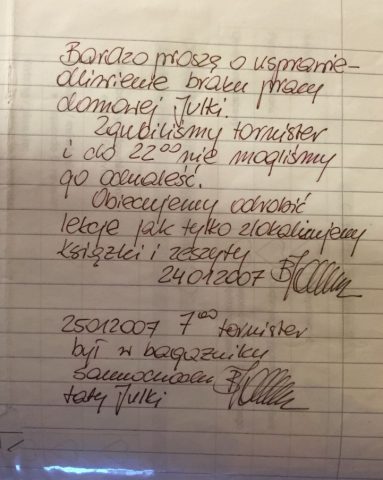 Bardzo proszę o usprawie-
dliwienie braku pracy
domowej Julki.
Zgubiliśmy tornister
i do 22⁰⁰ nie mogliśmy
go odnaleść.
Obiecujemy odrobić
lekcje jak tylko zlokalizujemy
książki i zeszyty
24012007
25012007 7⁰⁰ tornister
był w bagażniku
samochodu
taty Julki